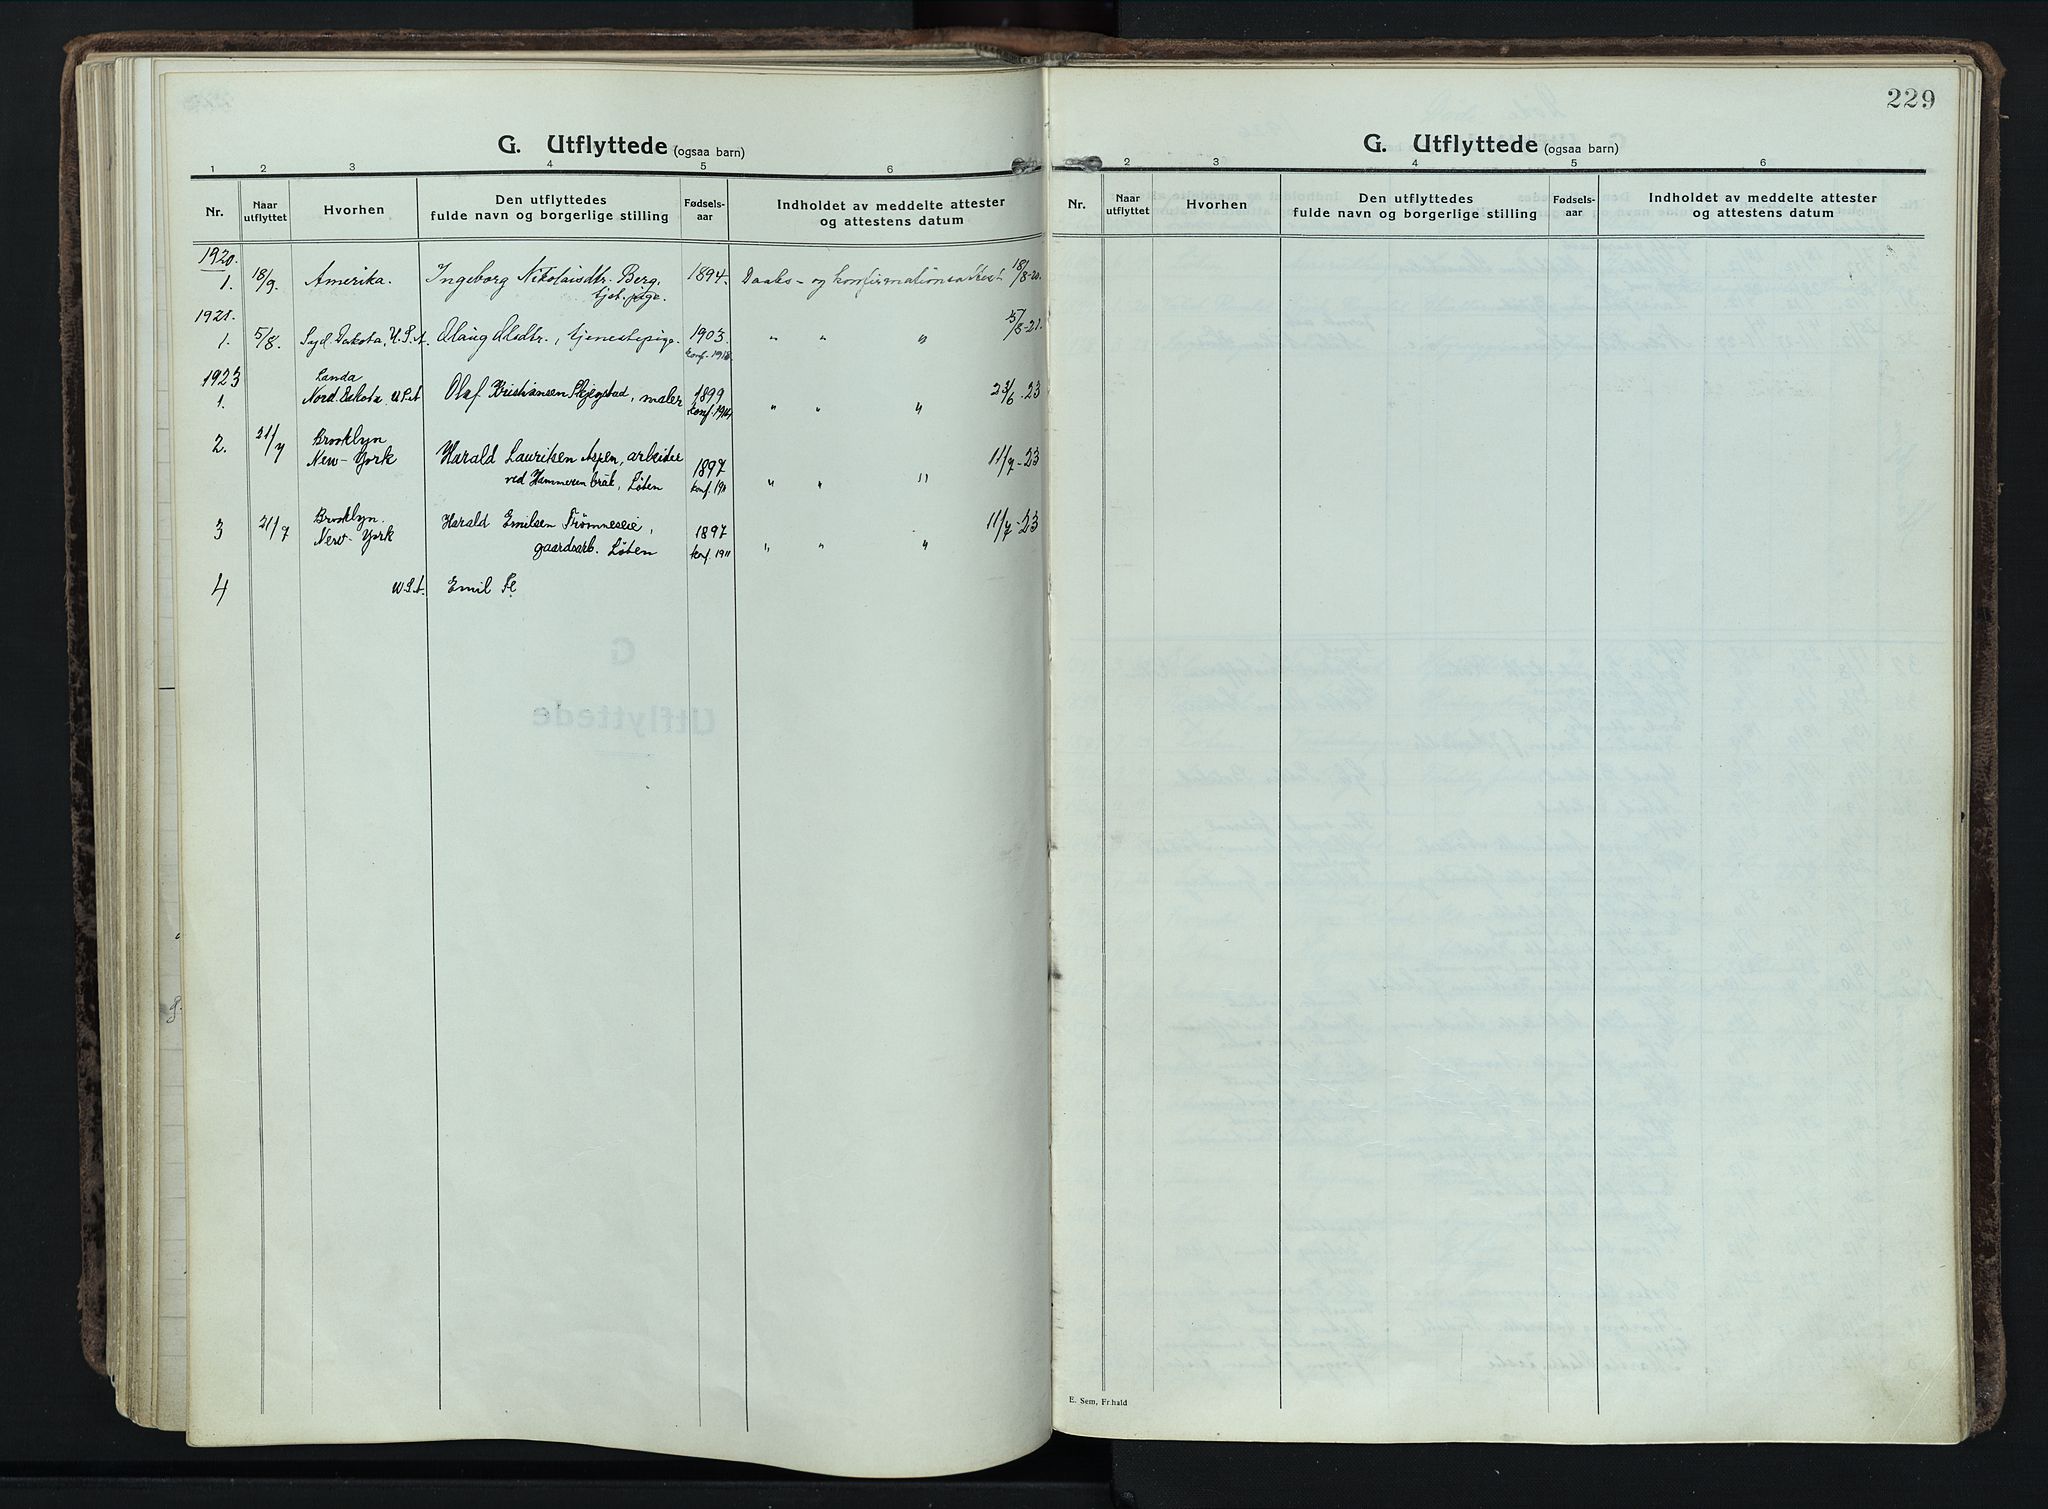 G. Utflyttede (ogsaa barn)
1 2 3 4 5 6
Nr. Naar utflyttet Hvorhen Den utflyttedes fulde navn og borgerlige stilling Fødsels-aar Indholdet av meddelte attester og attestens datum
1920.
1. 18/9. Amerika. Ingeborg Nikolaisdtr. Berg, 1894. Daabs- og konfirmationsattest 18/8-20.
tjet. pige.
1921.
1. 5/8. Syd. Dakota, U.S.A. Olaug Olsdtr., tjenestepige. 1903. " " " 5/8-21.
konf. 1918.
1923 Landa
1. Nord. Dakota U.S.A Olaf Kristiansen Skjegstad, maler 1899 " " " 23/6-23
konf. 1914
2. 21/7 Brooklyn
New-York Harald Lauritsen Aspen, arbeider 1897 11/7-23
ved Hammeren bruk, Løten konf. 1911 " " "
3 21/7 Brooklyn. Harald Emilsen Trømneseie, 11/7-23
New-York gaardsarb. Løten 1897 " " "
konf. 1911
4 U.S.A. Emil
229
G. Utflyttede (ogsaa barn)
2 3 4 5 6
Nr. Naar utflyttet Hvorhen Den utflyttedes fulde navn og borgerlige stilling Fødsels-aar Indholdet av meddelte attester og attestens datum
E. Sem, Fr.hald